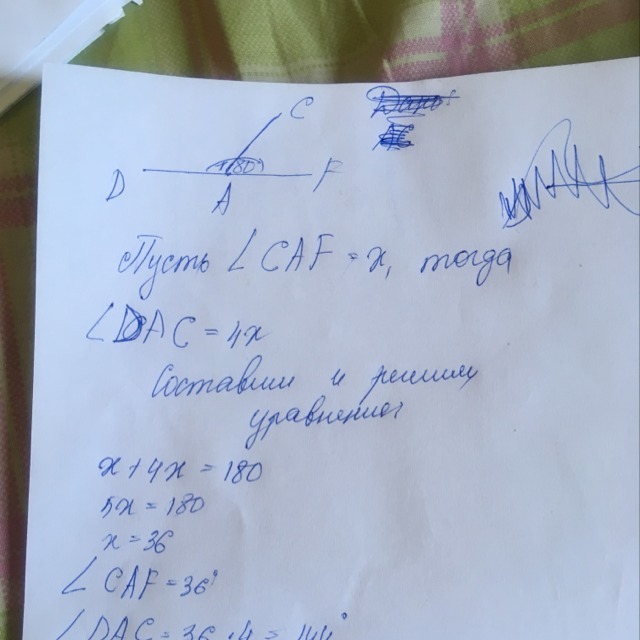 C
180°
D
F
A
Пусть ∠CAF = x, тогда
∠DAC = 4x
Составим и решим
уравнение:
x + 4x = 180
5x = 180
x = 36
∠CAF = 36°
∠DAC = 36 · 4 = 144°